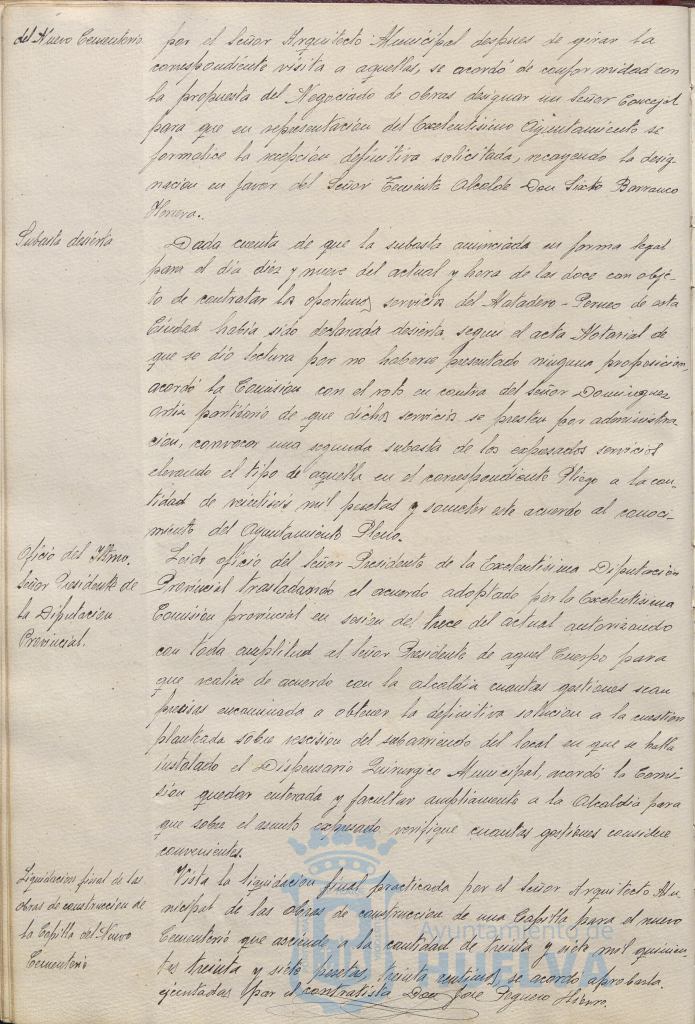 del Nuevo Cementerio
por el Señor Arquitecto Municipal despues de girar la
correspondiente visita a aquellas, se acordó de conformidad con
la propuesta del Negociado de obras designar un Señor Concejal
para que en representacion del Excelentisimo Ayuntamiento se
formalice la recepcion definitiva solicitada, recayendo la desig-
nacion en favor del Señor Teniente Alcalde Don Sixto Barranco
Herrera.
Subasta desierta
Dada cuenta de que la subasta anunciada en forma legal
para el dia diez y nueve del actual y hora de las doce con obje-
to de contratar los oportunos servicios del Matadero-Perneo de esta
Ciudad habia sido declarada desierta, segun el acta Notarial de
que se dio lectura por no haberse presentado ninguna proposicion,
acordó la Comision con el voto en contra del Señor Dominguez
Ortiz partidario de que dichos servicios se presten por administra-
cion, convocar una segunda subasta de los expresados servicios
elevando el tipo de aquella en el correspondiente Pliego a la can-
tidad de veintiseis mil pesetas y someter este acuerdo al conoci-
miento del Ayuntamiento Pleno.
Oficio del Iltmo.
Señor Presidente de
la Diputacion
Provincial.
Leido oficio del Señor Presidente de la Excelentisima Diputacion
Provincial trasladando el acuerdo adoptado por la Excelentisima
Comision provincial en sesion del trece del actual autorizando
con toda amplitud al Señor Presidente de aquel Cuerpo para
que realice de acuerdo con la Alcaldia cuantas gestiones sean
precisas encaminada a obtener la definitiva solucion a la cuestion
planteada sobre rescision del subarriendo del local en que se halla
instalado el Dispensario Quirurgico Municipal, acordó la Comi-
sion quedar enterada y facultar ampliamente a la Alcaldia para
que sobre el asunto expresado verifique cuantas gestiones considere
convenientes.
Liquidacion final de las
obras de construccion de
la Capilla del Nuevo
Cementerio
Vista la liquidacion final practicada por el Señor Arquitecto Mu-
nicipal de las obras de construccion de una Capilla para el nuevo
Cementerio que asciende a la cantidad de treinta y siete mil quinien-
tas treinta y siete pesetas treinta centimos, se acordó aprobarla.
ejecutadas por el contratista Don José Peguero Hierro.
Ayuntamiento de
HUELVA